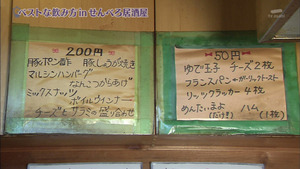 ベストな飲み方 in せんべろ居酒屋
200円
豚ポン酢 豚しょうが焼き
マルシンハンバーグ
なんこつからあげ
ミックスナッツ
ボイルウインナー
チーズとサラミの盛り合せ
50円
ゆで玉子 チーズ2枚
フランスパン+ガーリックトースト
リッツクラッカー 4枚
めんたいまよ ハム
(だけ!) (1枚)